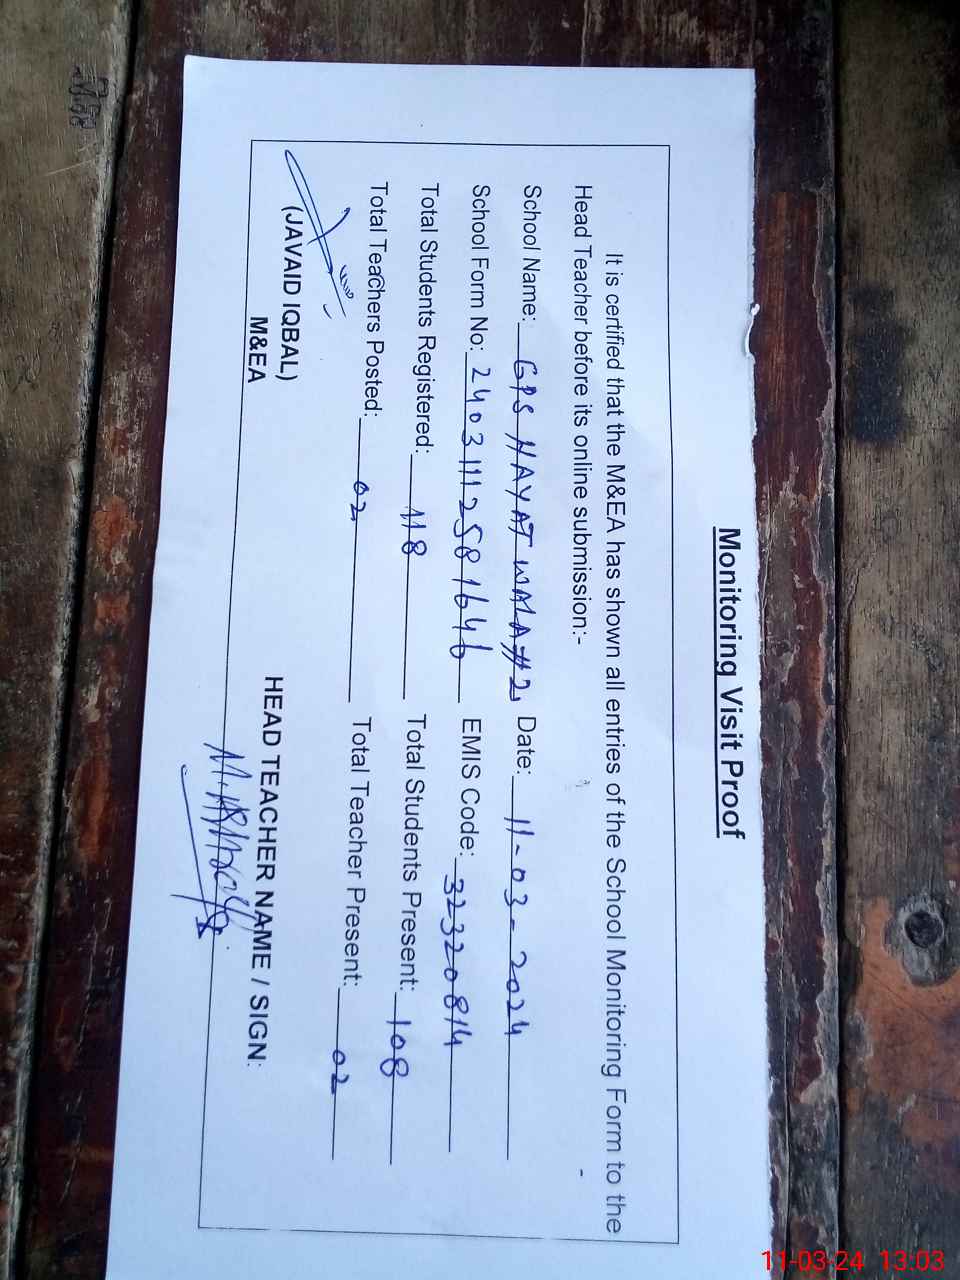 Monitoring Visit Proof
It is certified that the M&EA has shown all entries of the School Monitoring Form to the
Head Teacher before its online submission:-
School Name: GPS HAYAT WALA #2 Date: 11-03-2024
School Form No: 2403111258 1646 EMIS Code: 32320814
Total Students Registered: 118 Total Students Present: 108
Total Teachers Posted: 02 Total Teacher Present: 02
(JAVAID IQBAL)
M&EA
HEAD TEACHER NAME / SIGN:
11-03-24 13:03